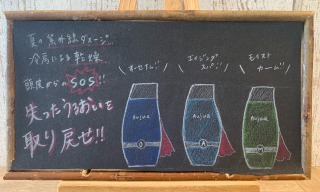 夏の紫外線ダメージ…
冷房による乾燥…
頭皮からのSOS!!
失ったうるおいを
取り戻せ!!
\ オーセナム!! /
\ エイジング
スパ!! /
\ モイスト
カーム!! /
Aujua
Aujua
Aujua
O
A
M